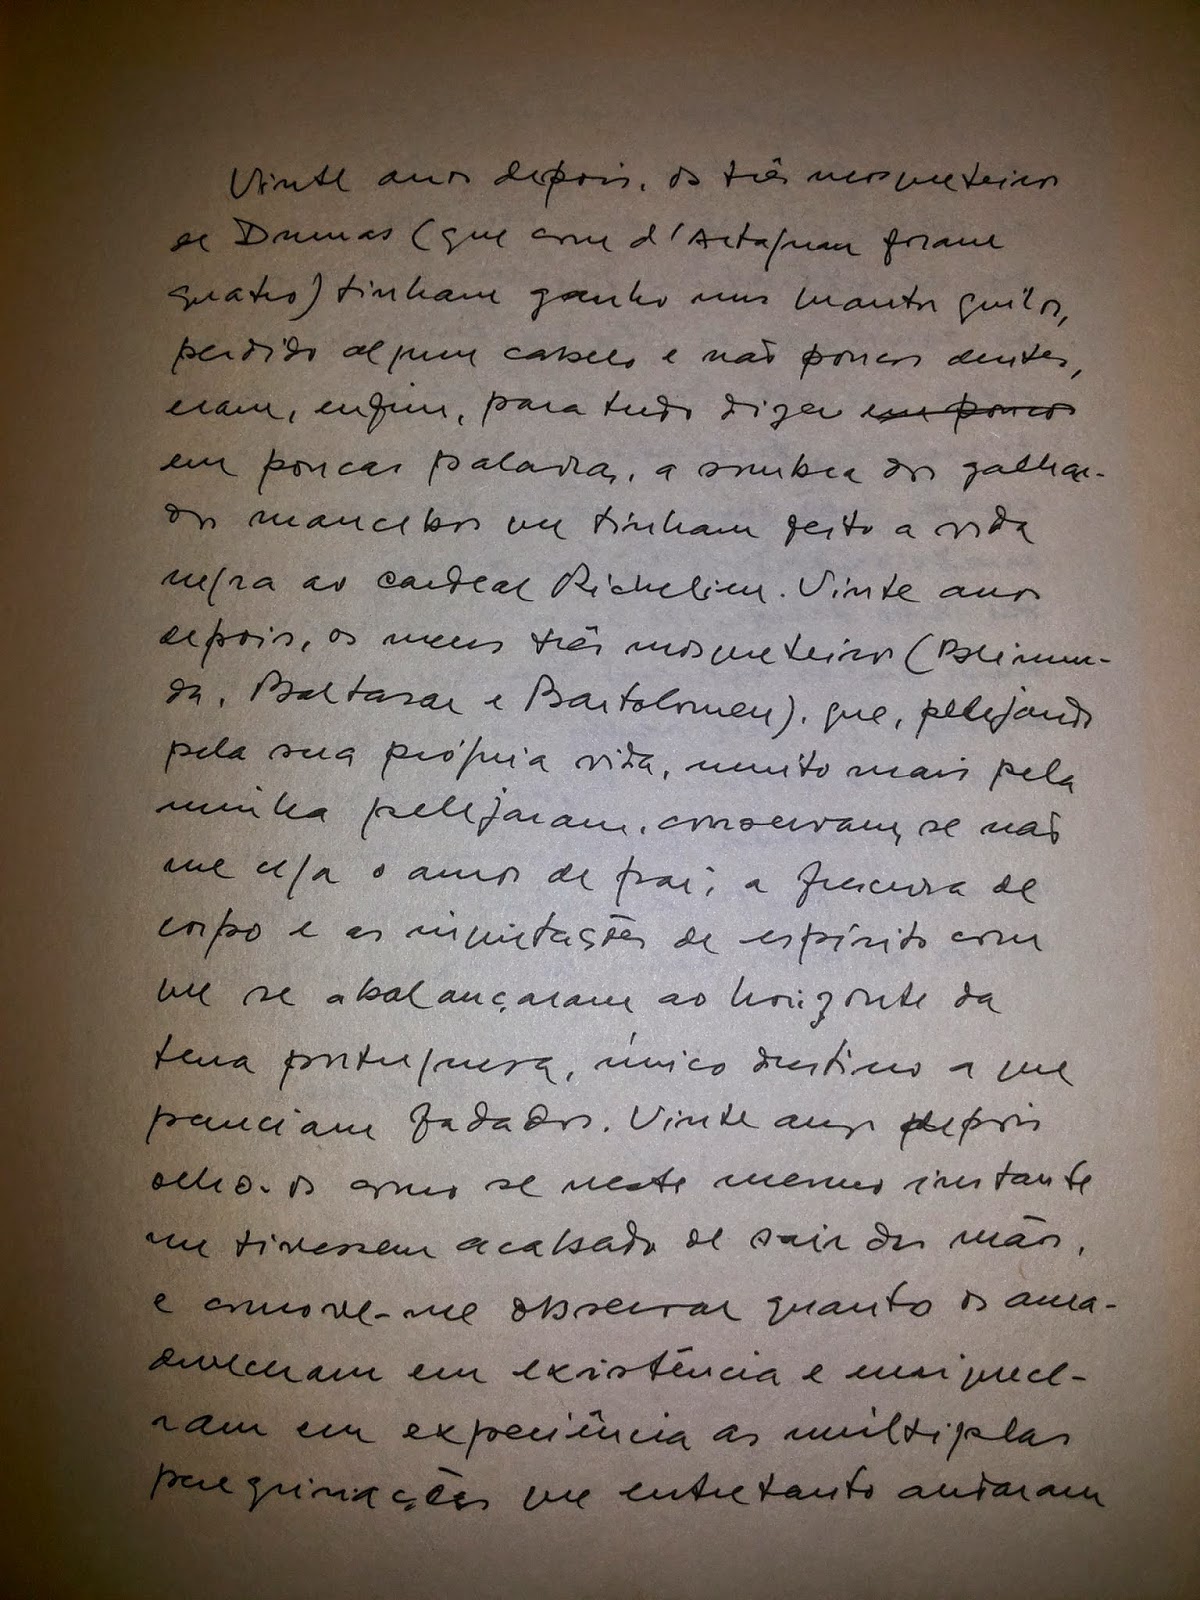 Vinte anos depois, os três mosqueteiros
de Dumas (que com d'Artagnan foram
quatro) tinham ganho uns quantos quilos,
perdido algum cabelo e não poucos dentes,
eram, enfim, para tudo dizer em poucos
em poucas palavras, a sombra dos galhar-
dos mancebos que tinham feito a vida
negra ao cardeal Richelieu. Vinte anos
depois, os meus três mosqueteiros (Blimun-
da, Baltasar e Bartolomeu), que, pelejando
pela sua própria vida, muito mais pela
minha pelejaram, conservam, se não
me cega o amor de pai, a frescura de
corpo e as inquietações de espírito com
que se abalançaram ao horizonte da
terra portuguesa, único destino a que
pareciam fadados. Vinte anos depois
olho-os como se neste mesmo instante
me tivessem acabado de sair das mãos,
e comove-me observar quanto os ama-
dureceram em existência e enriquece-
ram em experiência as múltiplas
peregrinações que entretanto andaram